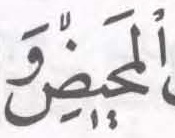 ٱلْمَحِيضِ وَ